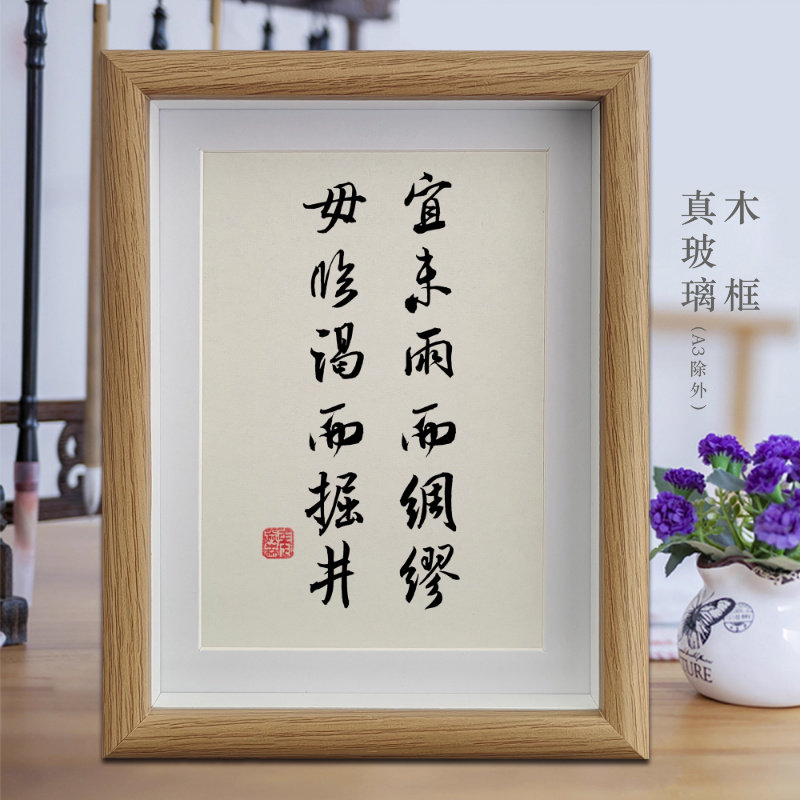 宜未雨而绸缪
毋临渴而掘井
木框
真玻璃(A3除外)
TURE